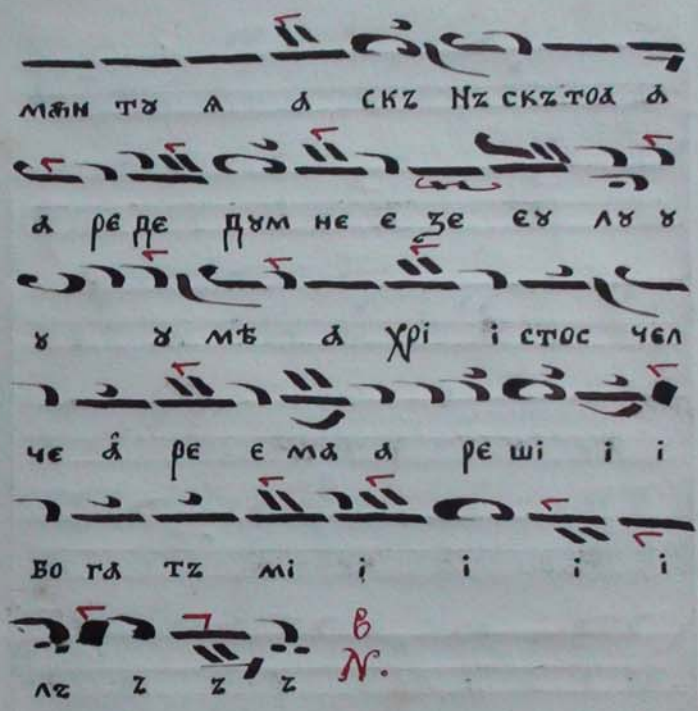 мѫн тꙋ ѧ а скꙁ нꙁ скꙁ тоа а
а ре де дꙋм не е ꙁе еꙋ лꙋ ꙋ
ꙋ ꙋ мѣ а хрі і стос чел
че а ре е ма а ре ші і і
бо га тꙁ мі і і і і
лꙁ ꙁ ꙁ ꙁ в
N.